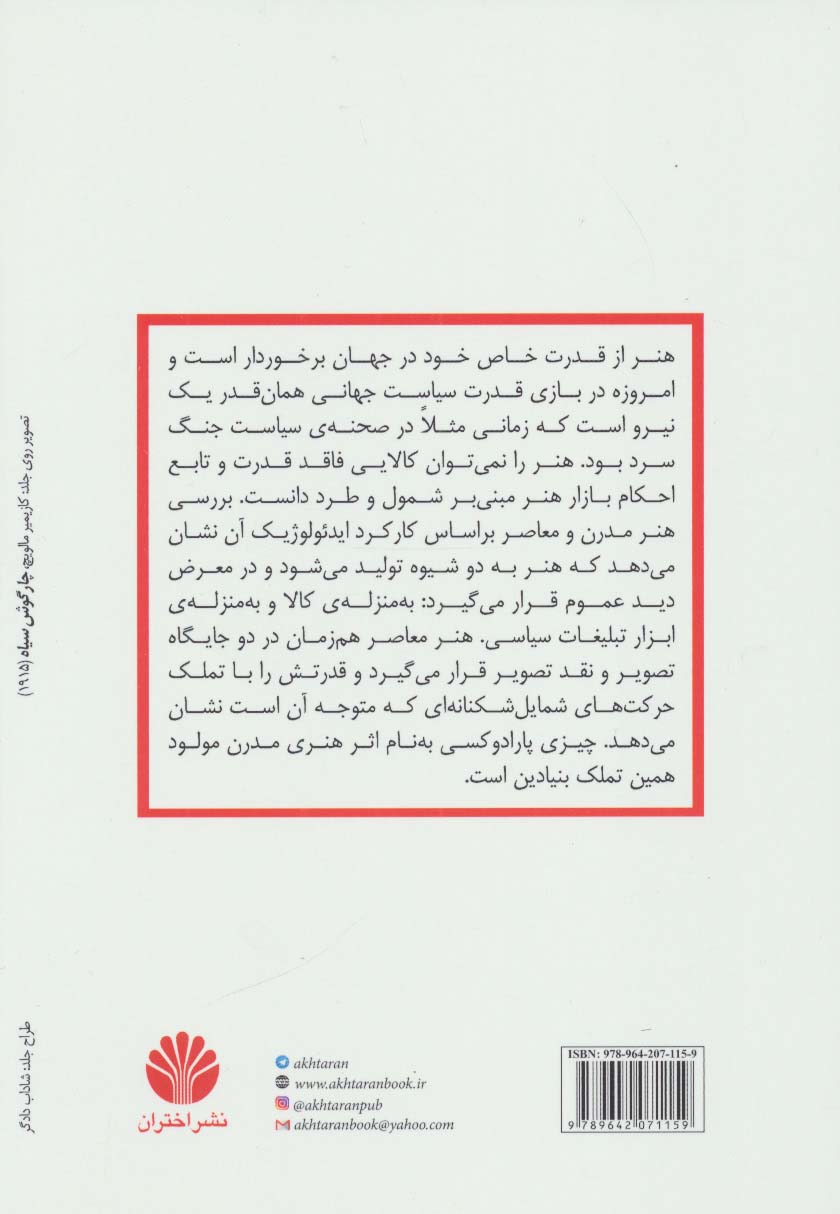 هنر از قدرت خاص خود در جهان برخوردار است و
امروزه در بازی قدرت سیاست جهانی همان‌قدر یک
نیرو است که زمانی مثلاً در صحنه‌ی سیاست جنگ
سرد بود. هنر را نمی‌توان کالایی فاقد قدرت و تابع
احکام بازار هنر مبنی‌بر شمول و طرد دانست. بررسی
هنر مدرن و معاصر براساس کارکرد ایدئولوژیک آن نشان
می‌دهد که هنر به دو شیوه تولید می‌شود و در معرض
دید عموم قرار می‌گیرد: به‌منزله‌ی کالا و به‌منزله‌ی
ابزار تبلیغات سیاسی. هنر معاصر هم‌زمان در دو جایگاه
تصویر و نقد تصویر قرار می‌گیرد و قدرتش را با تملک
حرکت‌های شمایل‌شکنانه‌ای که متوجه آن است نشان
می‌دهد. چیزی پارادوکسی به‌نام اثر هنری مدرن مولود
همین تملک بنیادین است.
تصویر روی جلد: کازیمیر مالویچ، چارگوش سیاه (۱۹۱۵)
طراح جلد: شاداب دادگر
نشر اختران
akhtaran
www.akhtaranbook.ir
@akhtaranpub
akhtaranbook@yahoo.com
ISBN: 978-964-207-115-9
9 789642 071159